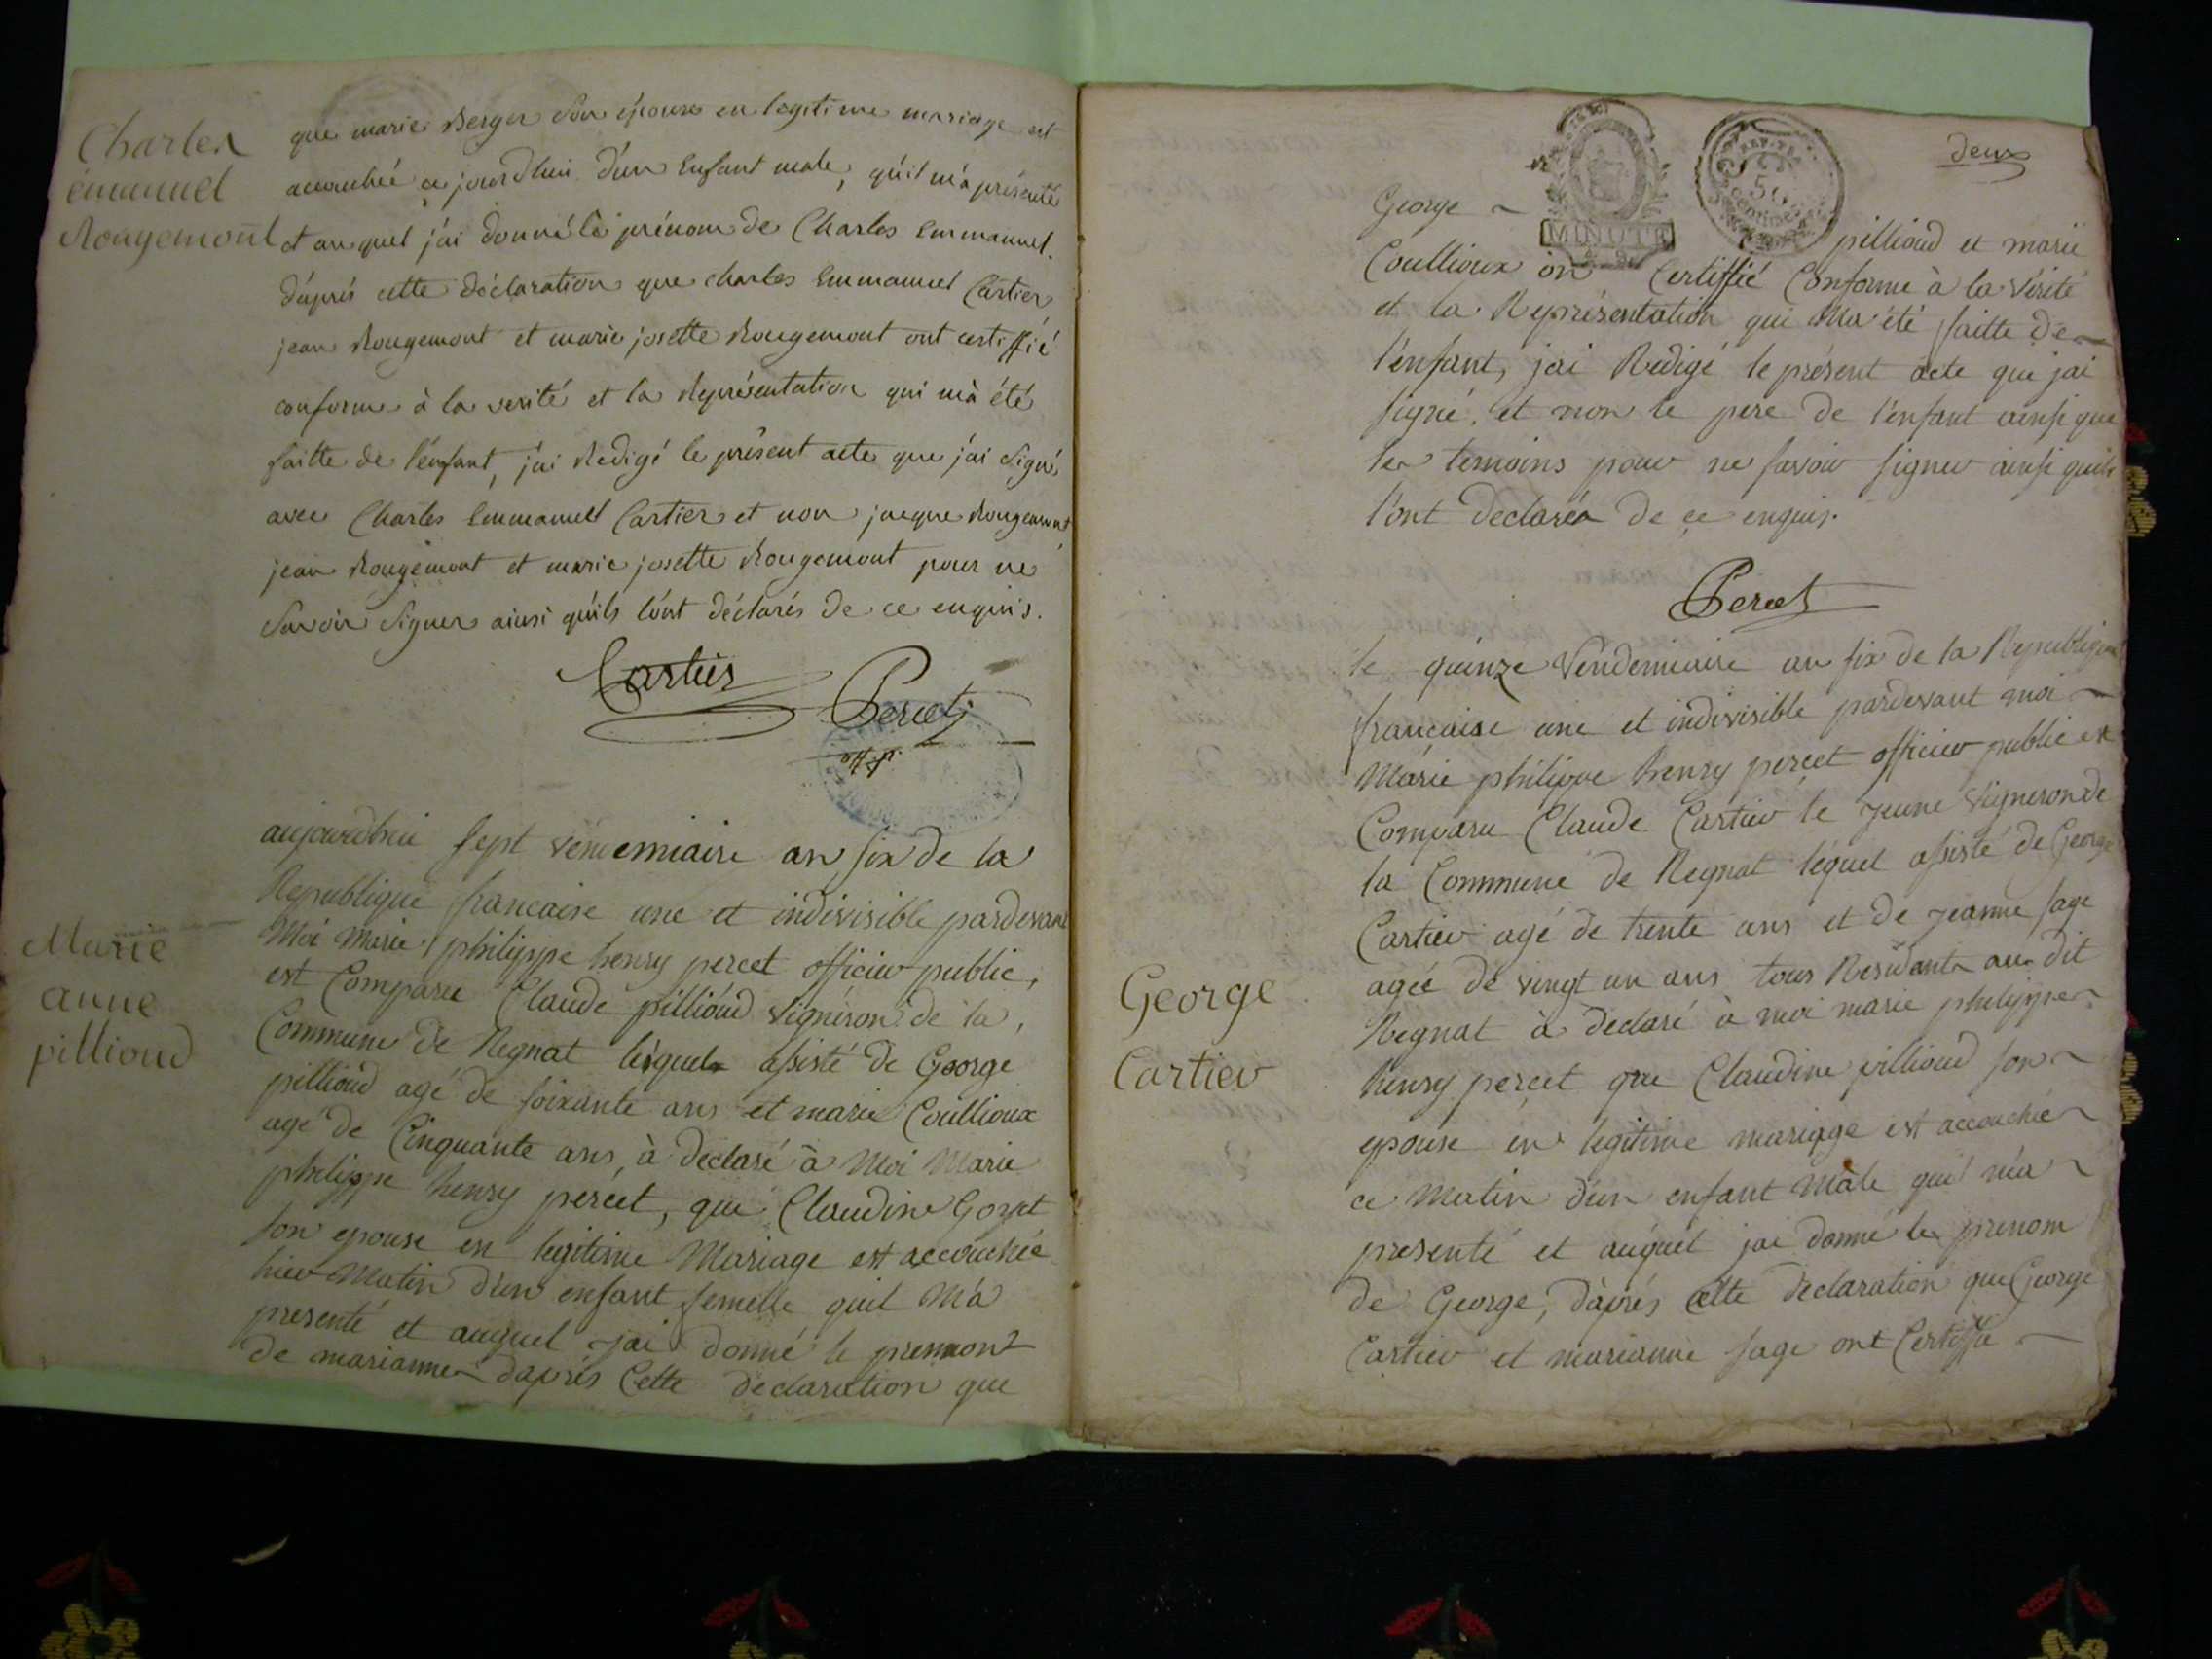 Charles
émanuel
Rougemont
que marie Berger son épouse en legitime mariage est
accouchée ce jourdhui d'un Enfant male, qu'il m'a présenté
et auquel j'ai donné le prénom de Charles Emmanuel.
d'aprés cette déclaration que charles Emmanuel Cartier,
jean Rougemont et marie josette Rougemont ont certiffié
conforme à la verité et la Représentation qui m'a été
faitte de l'enfant, j'ai Redigé le présent acte que j'ai signé,
avec Charles Emmanuel Cartier et non jacque Rougemont,
jean Rougemont et marie josette Rougemont pour ne
savoir signer ainsi qu'ils l'ont déclarés de ce enquis.
Cartier
Percet
off. p.
Marie
anne
pillioud
aujourdhui sept vendemiaire an six de la
Republique francaise une et indivisible pardevant
Moi Marie philippe henry percet officier public,
est Comparu Claude pillioud vigneron de la,
Commune de Regnat lequel assisté de George
pillioud agé de soixante ans et marie Coullioux
agé de Cinquante ans, à déclaré à Moi Marie
philippe henry percet, que Claudine
son epouse en legitime Mariage est accouchée
hier Matin d'un enfant femelle quil M'a
presenté et auquel jai donné le
de marianne daprés Cette declaration que
deux
MINUTE
REP. FRA
50
centimes
George pillioud et marie
Coullioux on Certiffié Conforme à la vérité
et la Représentation qui Ma été faitte de
l'enfant, jai Redigé le présent acte que jai
signé. et non le pere de l'enfant ainsi que
les temoins pour ne savoir signer ainsi quils
l'ont declarés de ce enquis.
Percet
George
Cartier
le quinze Vendemiaire an six de la Republique
française une et indivisible pardevant moi
Marie philippe henry percet officier public est
Comparu Claude Cartier le jeune vigneron de
la Commune de Regnat lequel assisté de George
Cartier agé de trente ans et de jeanne sage
agée de vingt un ans tous Residants au dit
Regnat à declaré à moi marie philippe
henry percet que Claudine pillioud son
epouse en legitime mariage est accouchée
ce Matin d'un enfant Mâle quil m'a
presenté et auquel jai donné le prenom
de George, daprés cette declaration que George
Cartier et marianne sage ont Certiffié